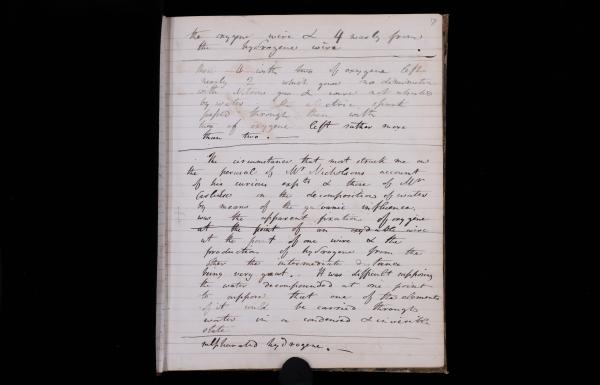 the oxygene wire & 4 nearly from
the hydrogene wire.
4 with two of oxygene left
nearly 2 which gave no diminution
with nitrous gas & were not absorbed
by water the electric spark
passed through them with
two of oxygene left rather more
than two. —
The circumstance that most struck me on
the perusal of Mr Nicholsons account
of his curious expts & those of Mr
Carlisle in the decomposition of water
by means of the galvanic influence,
was the apparent fixation of oxygene
at the point of an oxydable wire
at the point of one wire & the
production of hydrogene from the
other the intermediate distance
being very great. It was difficult supposing
the water decompounded at one point
to suppose that one of the elements
of it could be carried through
water in a condensed & invisible
state
sulphurated hydrogene. —